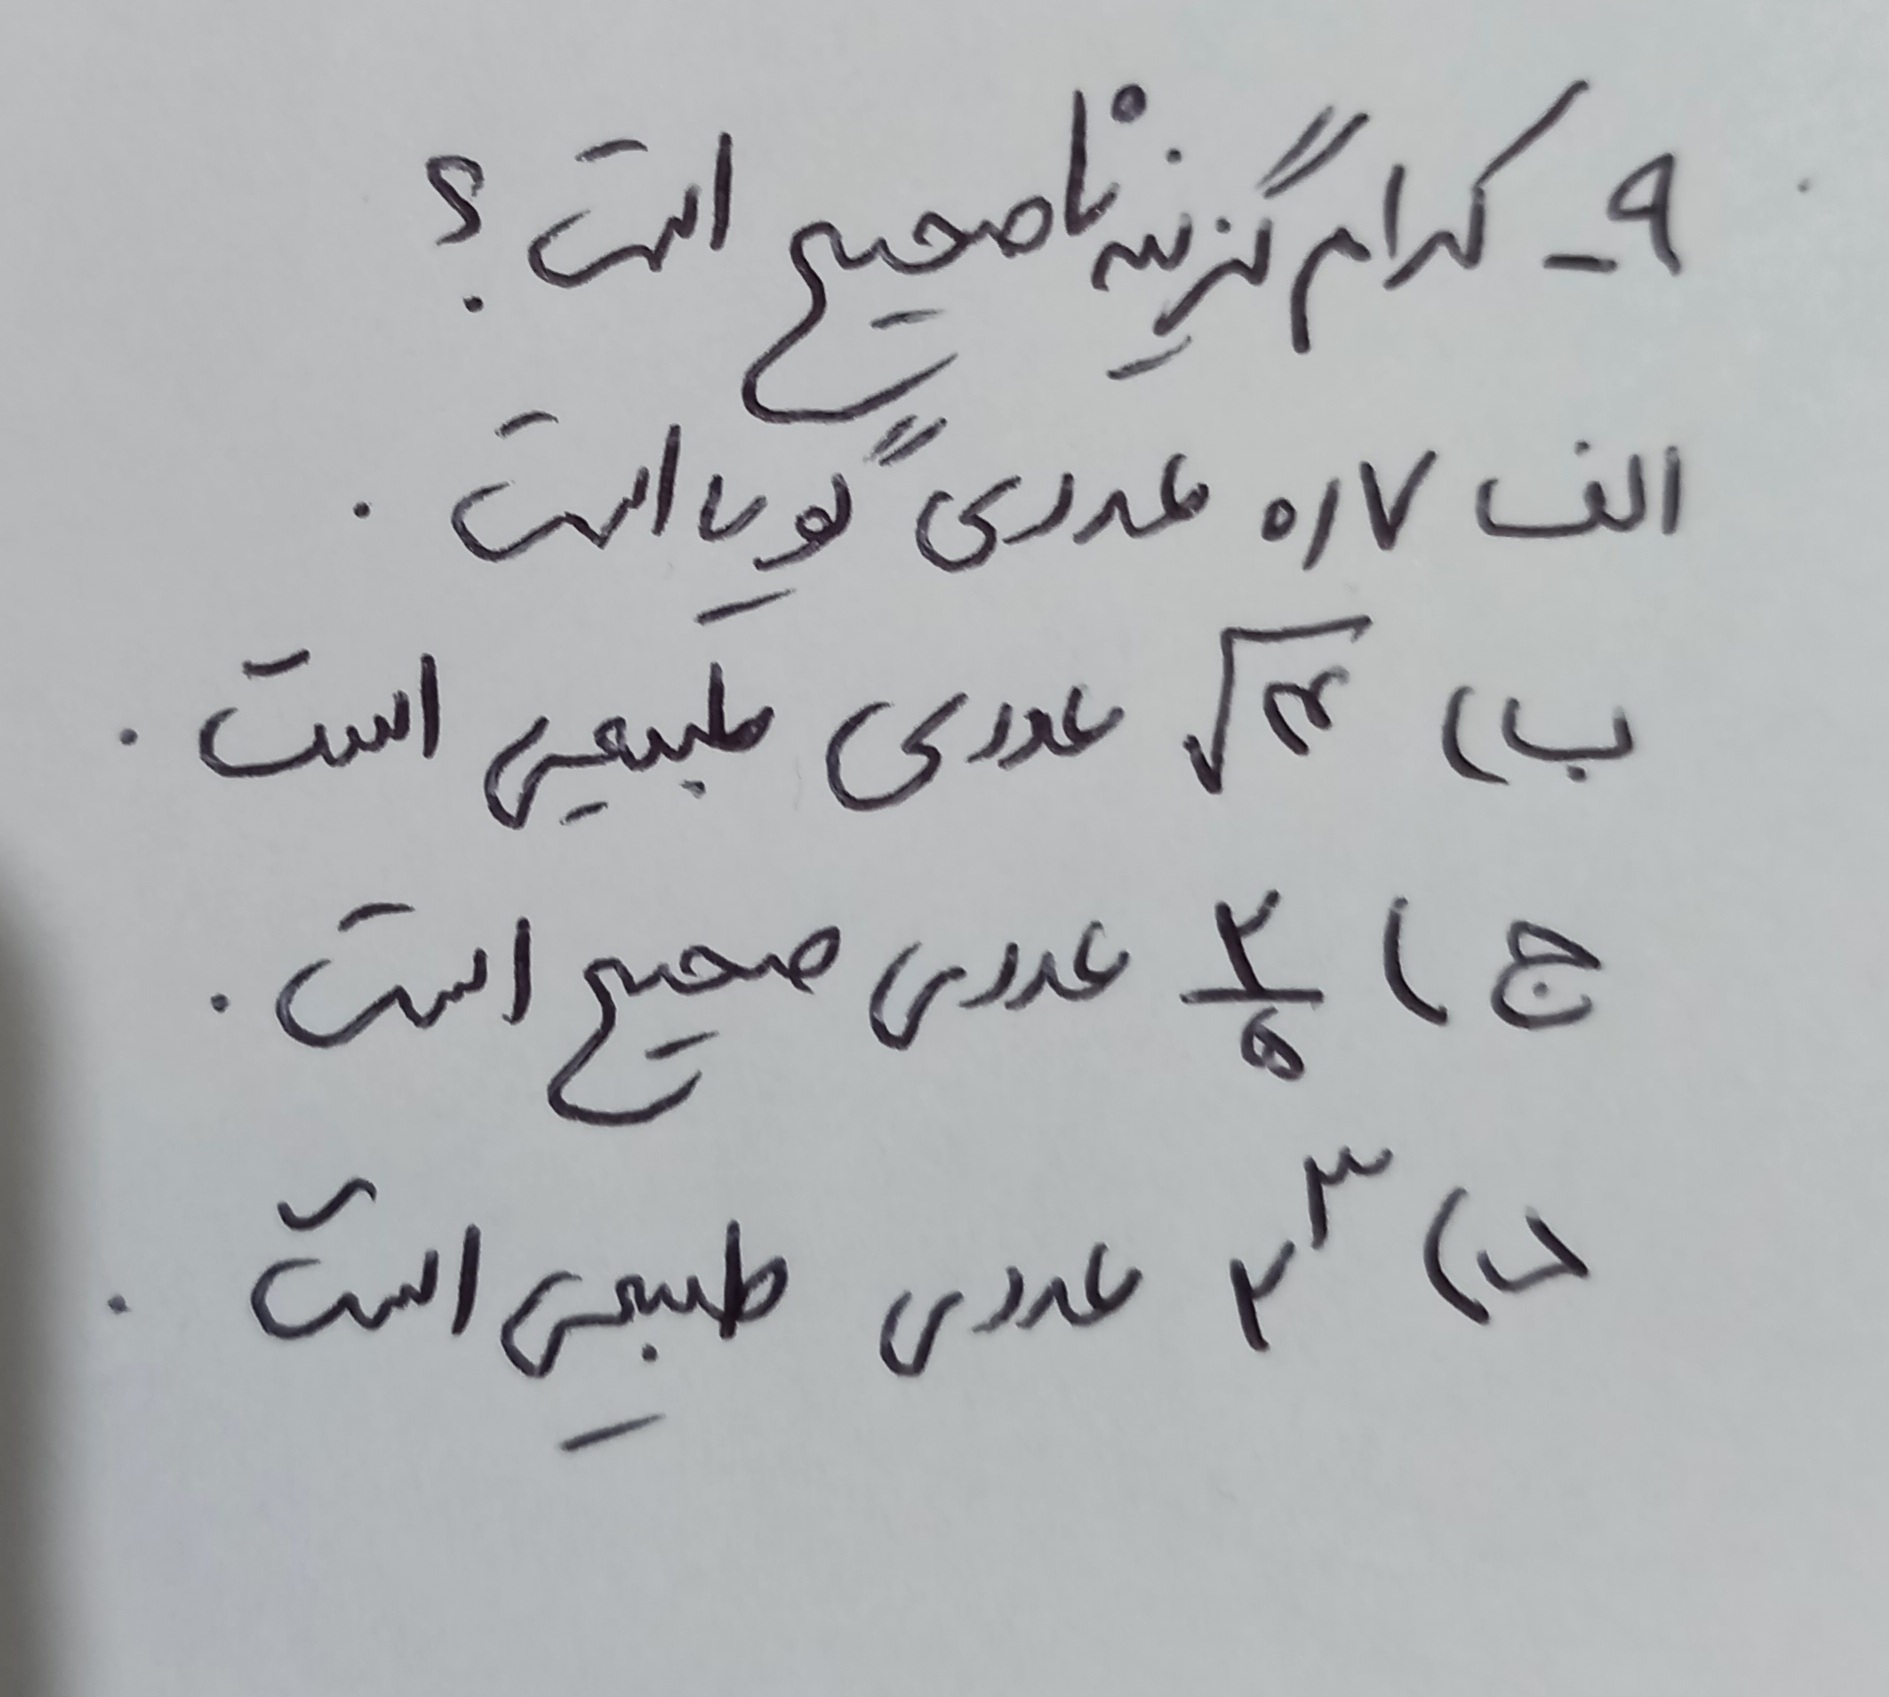 ۹- کدام گزینه ناصحیح است؟
الف ۰/۷ عددی گویا است.
ب) √۴ عددی طبیعی است.
ج) ۲/۵ عددی صحیح است.
د) ۲^۳ عددی طبیعی است.